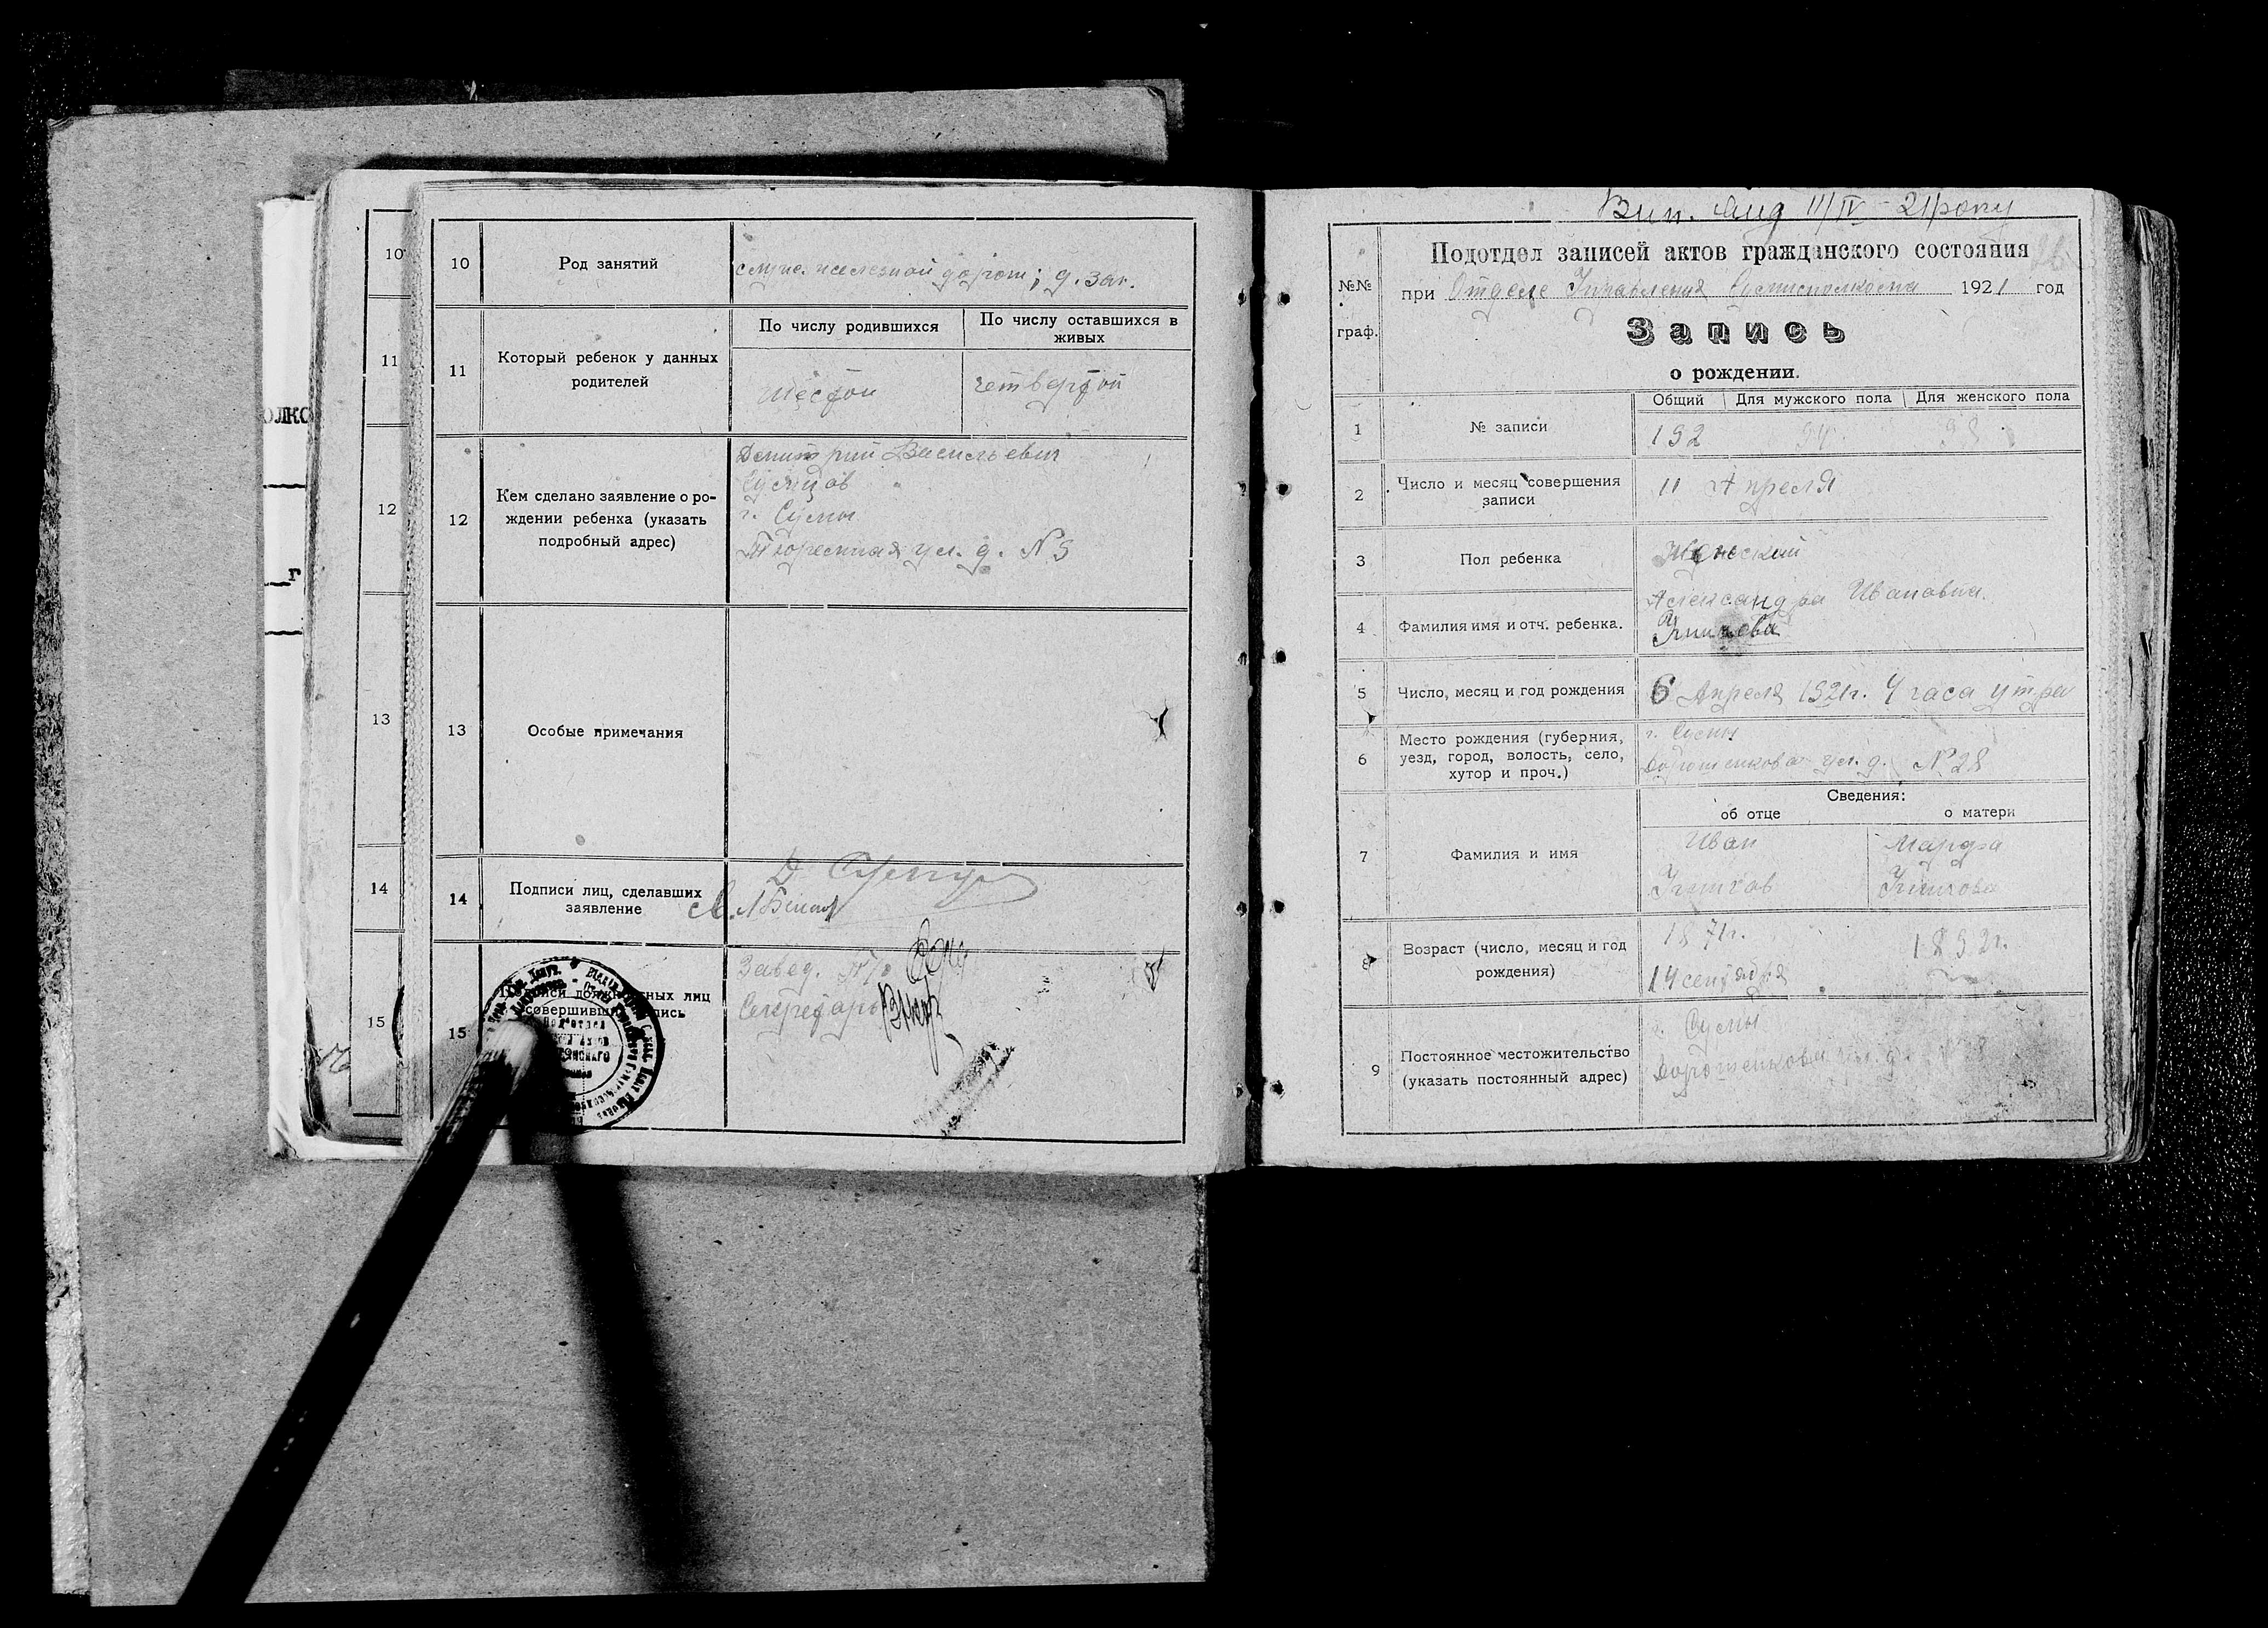 10
11
12
13
14
15
олко
г
10
Род занятий
служ. железной дорог; д. зан.
11
Который ребенок у данных
родителей
По числу родившихся
По числу оставшихся в
живых
шестой
четвертой
12
Кем сделано заявление о ро-
ждении ребенка (указать
подробный адрес)
Димитрий Васильевич
г. Сумы
ул. д. N 5
13
Особые примечания
14
Подписи лиц, сделавших
заявление
15
Подписи должностных лиц
совершивших запись
Завед. П/о
Секретарь
Вип. вид 11/IV - 21 року
№№
граф.
Подотдел записей актов гражданского состояния
при Отделе Управления Сумисполкома 1921 год
Запись
о рождении.
1
№ записи
Общий Для мужского пола Для женского пола
192 94 98
2
Число и месяц совершения
записи
11 Апреля
3
Пол ребенка
Женский
4
Фамилия имя и отч. ребенка.
Александра Ивановна
5
Число, месяц и год рождения
6 Апреля 1921г. 4 часа утра
6
Место рождения (губерния,
уезд, город, волость, село,
хутор и проч.)
г. Сумы
Дорошенкова ул. д. № 28
7
Фамилия и имя
Сведения:
об отце
о матери
Иван
Марфа
8
Возраст (число, месяц и год
рождения)
1871г.
14 сентября
1892г.
9
Постоянное местожительство
(указать постоянный адрес)
г. Сумы
Дорошенкова ул. д. № 28